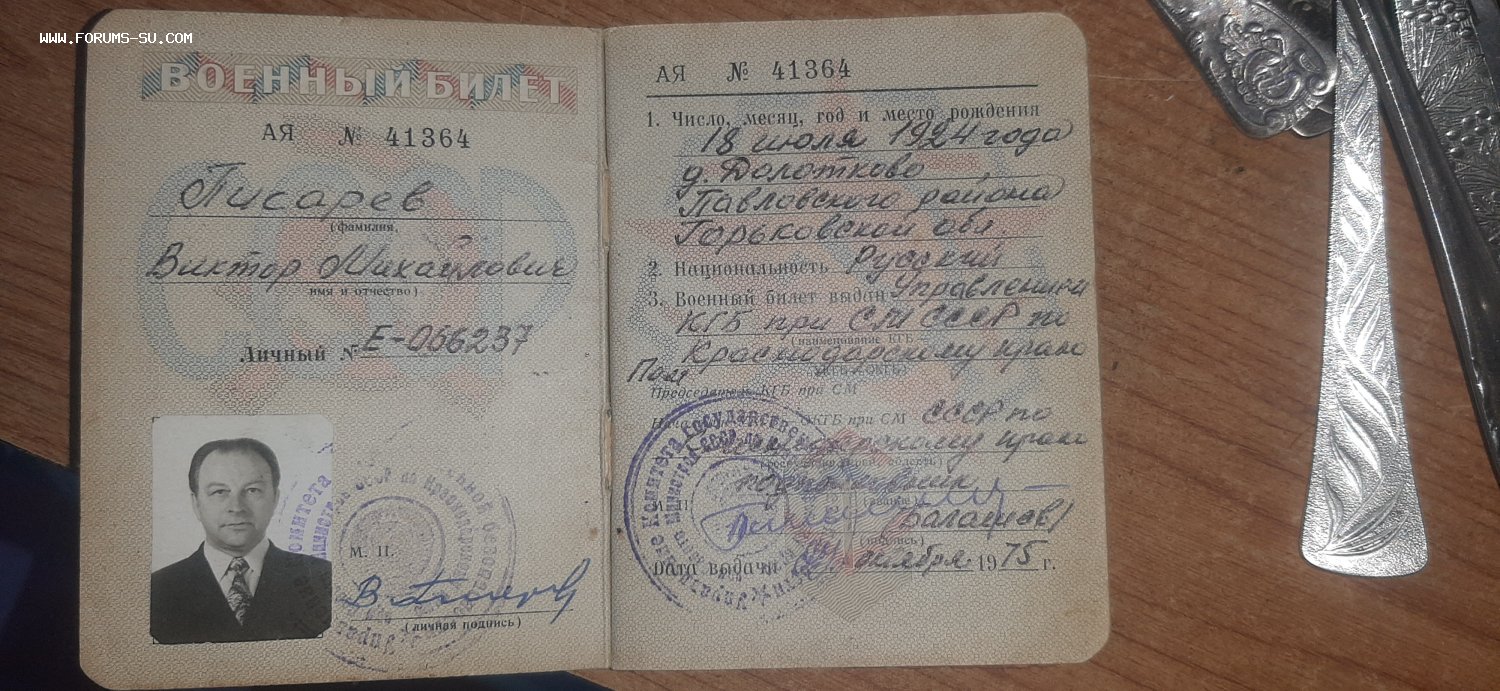 WWW.FORUMS-SU.COM
ВОЕННЫЙ БИЛЕТ
АЯ № 41364
Писарев
(фамилия)
Виктор Михайлович
имя и отчество)
Личный № Е-066237
М. П.
(личная подпись)
АЯ № 41364
1. Число, месяц, год и место рождения
18 июля 1924 года
д. Долотково
Павловского района
Горьковской обл.
2. Национальность Русский
3. Военный билет выдан Управлением
КГБ при СМ СССР по
(наименование КГБ
Краснодарскому краю
Пом
Председатель КГБ при СМ
ОКГБ при СМ СССР по
краю
Комитета Государственной
(звание)
Балашов)
(подпись)
Дата выдачи ября 1975 г.